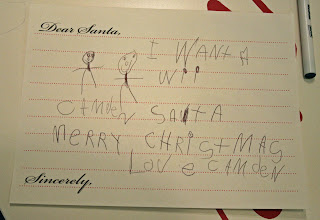 Dear Santa,
I WANT A
Wii
CAMDEN SANTA
MERRY CHRISTMAS
LOVE CAMDEN
Sincerely,